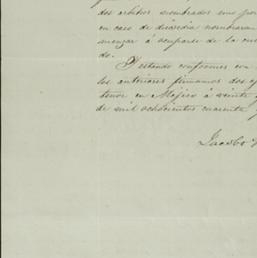 dos arbitros nombrados uno por
en caso de dicordia nombraran
menzar á ocuparse de la cue
do.
Y estando conformes con
los anteriores firmamos dos ej
tenor en Méjico á veinte y
de mil ochocientos cuarenta y
Jacobo